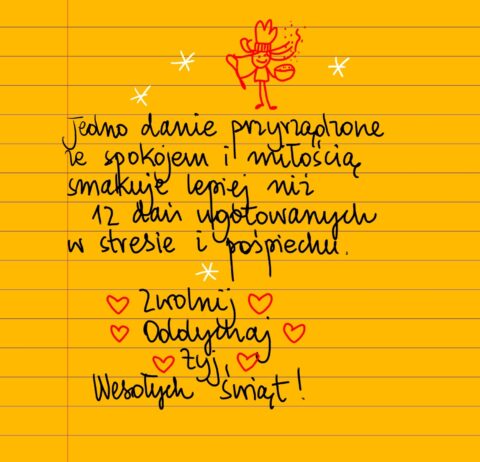 Jedno danie przyrządzone
ze spokojem i miłością
smakuje lepiej niż
12 dań ugotowanych
w stresie i pośpiechu.
Zwolnij
Oddychaj
Żyj,
Wesołych Świąt!